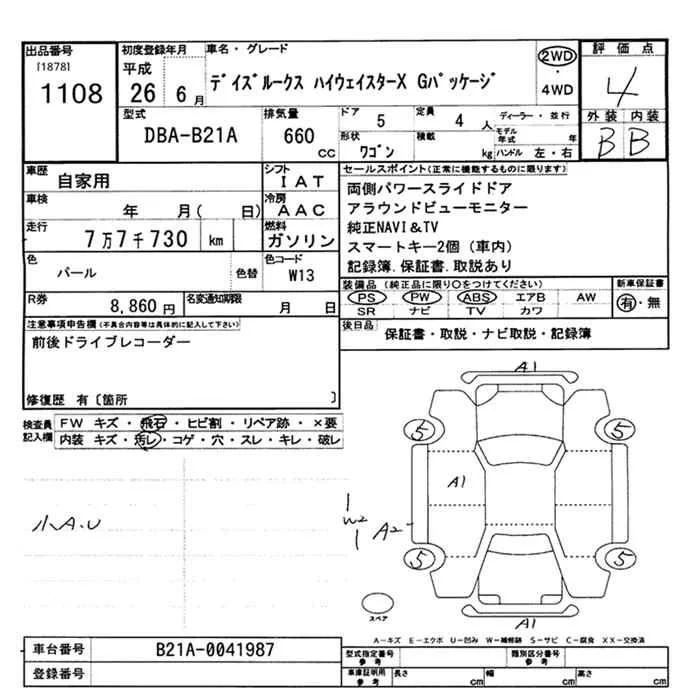 出品番号 初度登録年月 車名・グレード 評価点
[1878] 平成 デイズルークス ハイウェイスターX Gパッケージ 2WD
1108 26 6月 ・ 4WD 4
型式 排気量 ドア 定員 ディーラー・並行 外装 内装
DBA-B21A 660 cc 5 4人 モデル年式 年 B B
形状 積載
ワゴン kg ハンドル 左・右
車歴 自家用 シフト IAT
車検 年 月( 日) 冷房 AAC
走行 7万7千730 km 燃料 ガソリン
色 パール 色替 色コード W13
R券 8,860円 名変通知期限 月 日
セールスポイント(正常に機能するものに限ります)
両側パワースライドドア
アラウンドビューモニター
純正NAVI&TV
スマートキー2個(車内)
記録簿.保証書.取説あり
装備品(純正品に限り○をつけてください) 新車保証書
PS PW ABS エアB AW 有・無
SR ナビ TV カワ
後日品 保証書・取説・ナビ取説・記録簿
注意事項申告欄(不具合内容等は具体的に記入して下さい)
前後ドライブレコーダー
修復歴 有〔箇所 〕
検査員記入欄 FW キズ・飛石・ヒビ割・リペア跡・×要
内装 キズ・汚レ・コゲ・穴・スレ・キレ・破レ
小A.U
A1
5 5
A1
W2 A2
5 5
スペア
A1
A-キズ E-エクボ U-凹み W-補修跡 S-サビ C-腐食 XX-交換済
車台番号 B21A-0041987
登録番号
型式指定番号 参考 類別区分番号 参考
車庫証明用 参考 長さ cm 幅 cm 高さ cm